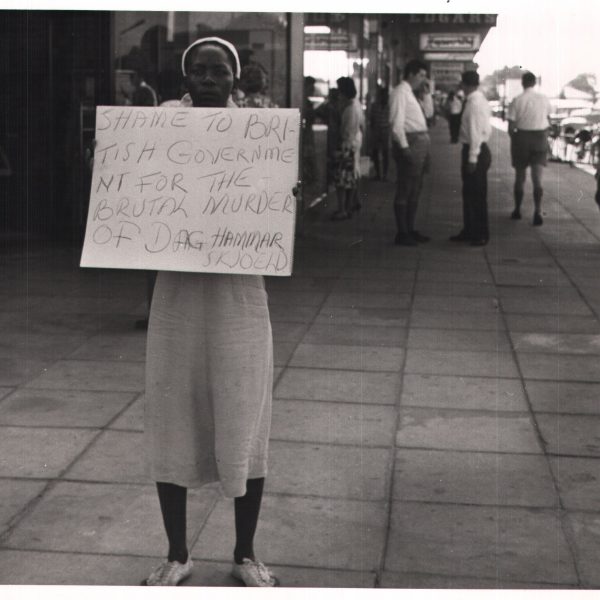 EDGARS
SHAME TO BRI-
TISH GOVERNME
NT FOR THE
BRUTAL MURDER
OF DAG HAMMAR
SKJOELD